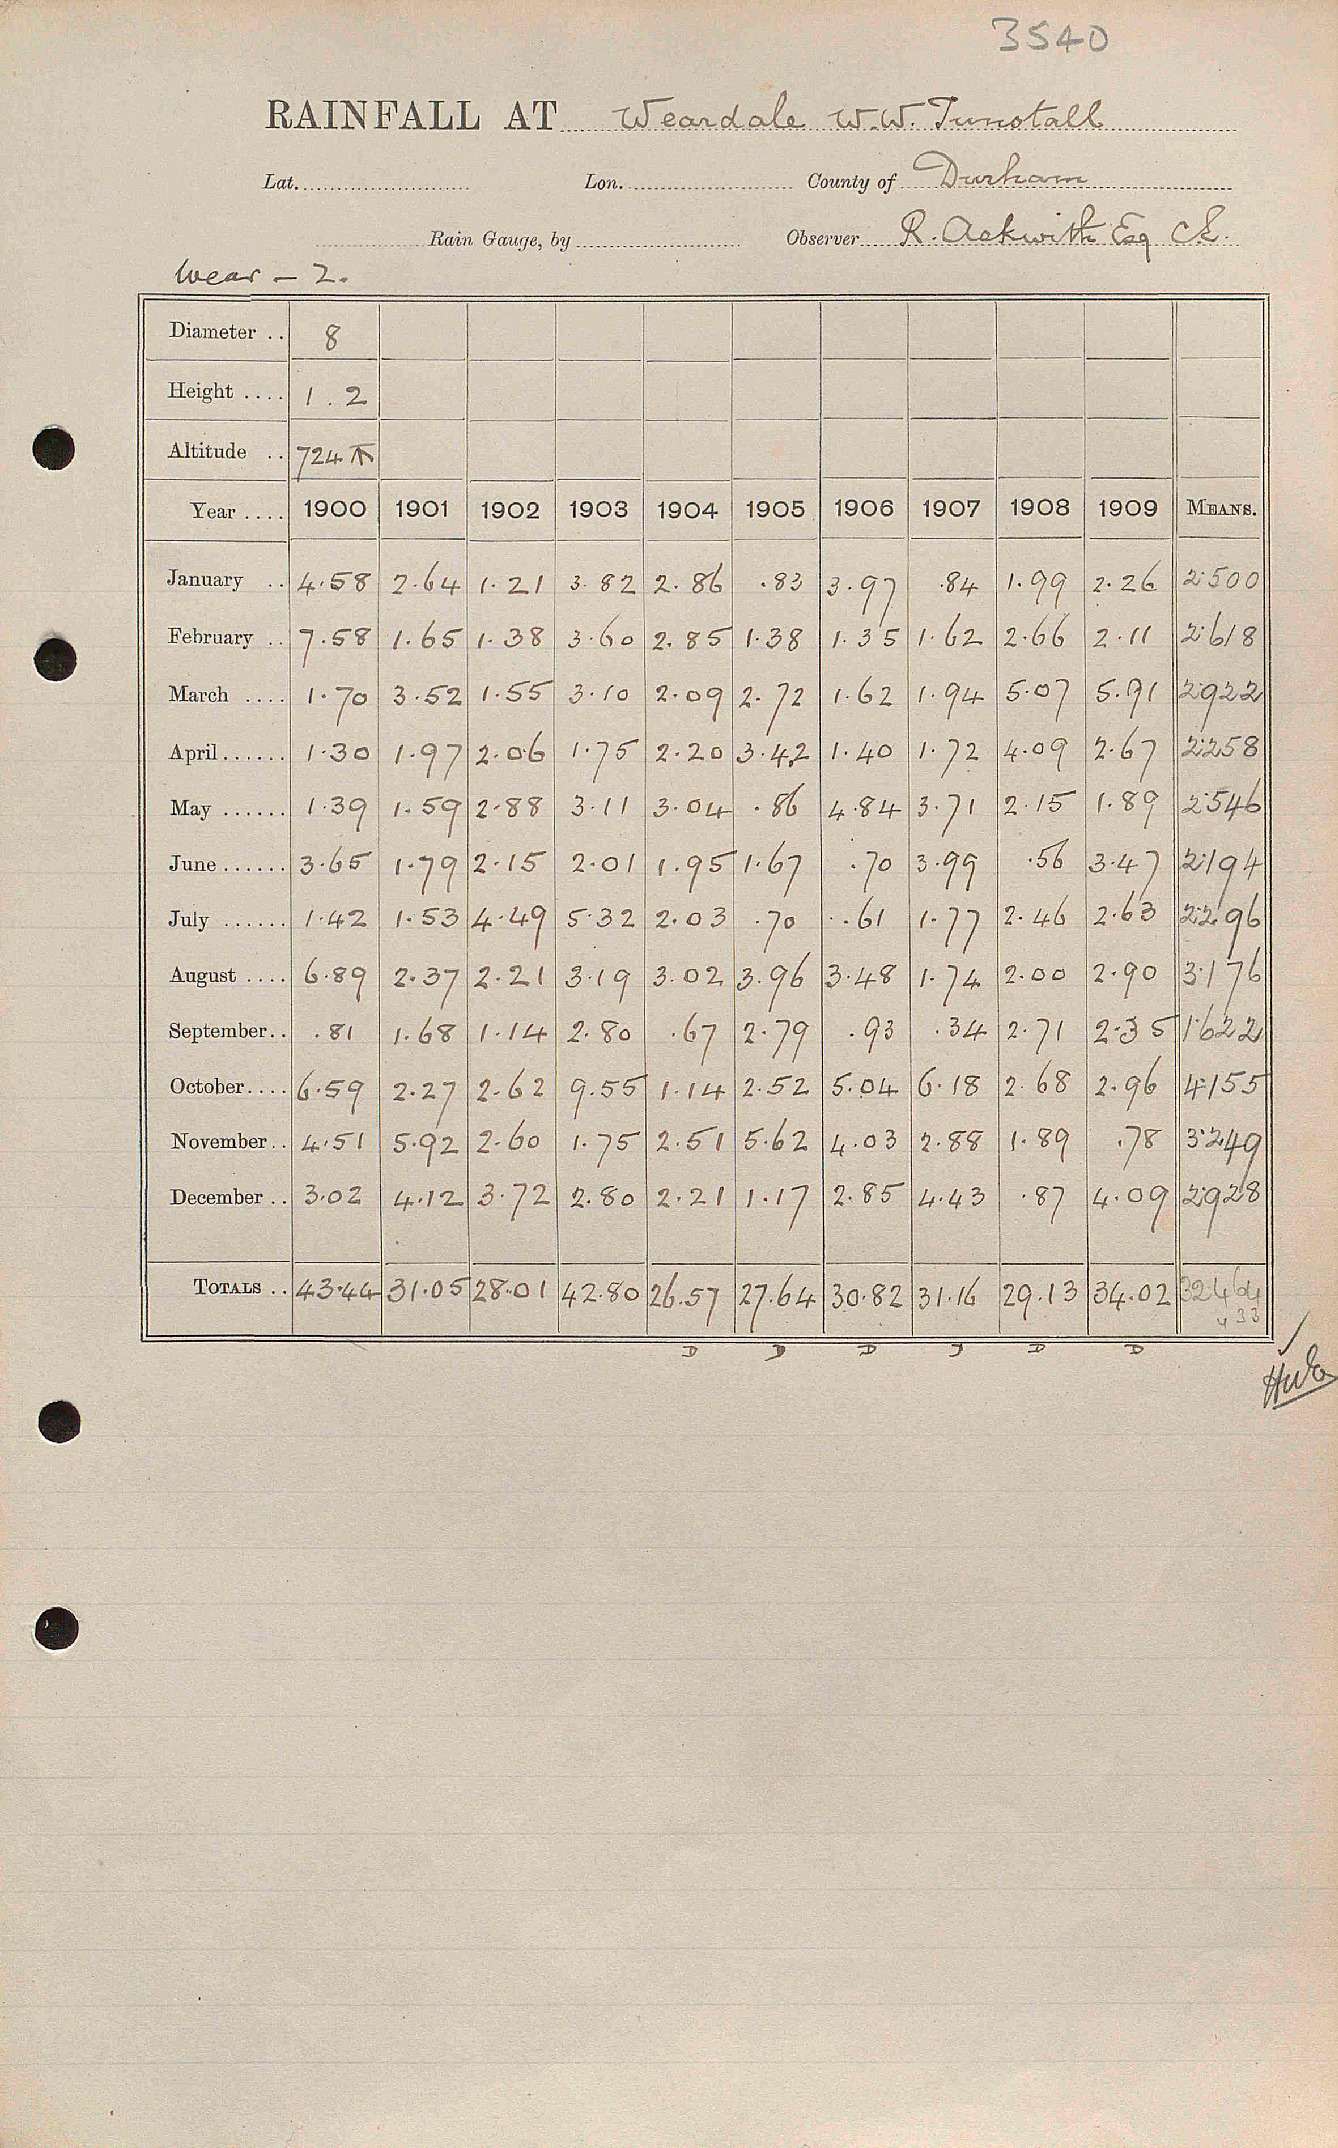 3540
RAINFALL AT Weardale W.W. Tunstall
Lat. Lon. County of Durham
Rain Gauge, by Observer R. Askwith Esq CE.
Wear – 2.
Diameter .. 8
Height .... 1.2
Altitude .. 724
Year .... 1900 1901 1902 1903 1904 1905 1906 1907 1908 1909 MEANS.
January .. 4.58 2.64 1.21 3.82 2.86 .83 3.97 .84 1.99 2.26 2.500
February .. 7.58 1.65 1.38 3.60 2.85 1.38 1.35 1.62 2.66 2.11 2.618
March .... 1.70 3.52 1.55 3.10 2.09 2.72 1.62 1.94 5.07 5.91 2.922
April ...... 1.30 1.97 2.06 1.75 2.20 3.42 1.40 1.72 4.09 2.67 2.258
May ...... 1.39 1.59 2.88 3.11 3.04 .86 4.84 3.71 2.15 1.89 2.546
June ...... 3.65 1.79 2.15 2.01 1.95 1.67 .70 3.99 .56 3.47 2.194
July ...... 1.42 1.53 4.49 5.32 2.03 .70 .61 1.77 2.46 2.63 2.296
August .... 6.89 2.37 2.21 3.19 3.02 3.96 3.48 1.74 2.00 2.90 3.176
September .. .81 1.68 1.14 2.80 .67 2.79 .93 .34 2.71 2.35 1.622
October .... 6.59 2.27 2.62 9.55 1.14 2.52 5.04 6.18 2.68 2.96 4.155
November .. 4.51 5.92 2.60 1.75 2.51 5.62 4.03 2.88 1.89 .78 3.249
December .. 3.02 4.12 3.72 2.80 2.21 1.17 2.85 4.43 .87 4.09 2.928
TOTALS .. 43.44 31.05 28.01 42.80 26.57 27.64 30.82 31.16 29.13 34.02 32.464
D D D D D D